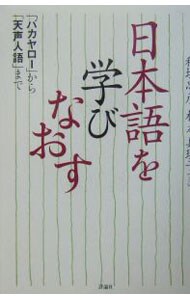 日本語を
学び
なおす
「バカヤロー」から
「天声人語」まで